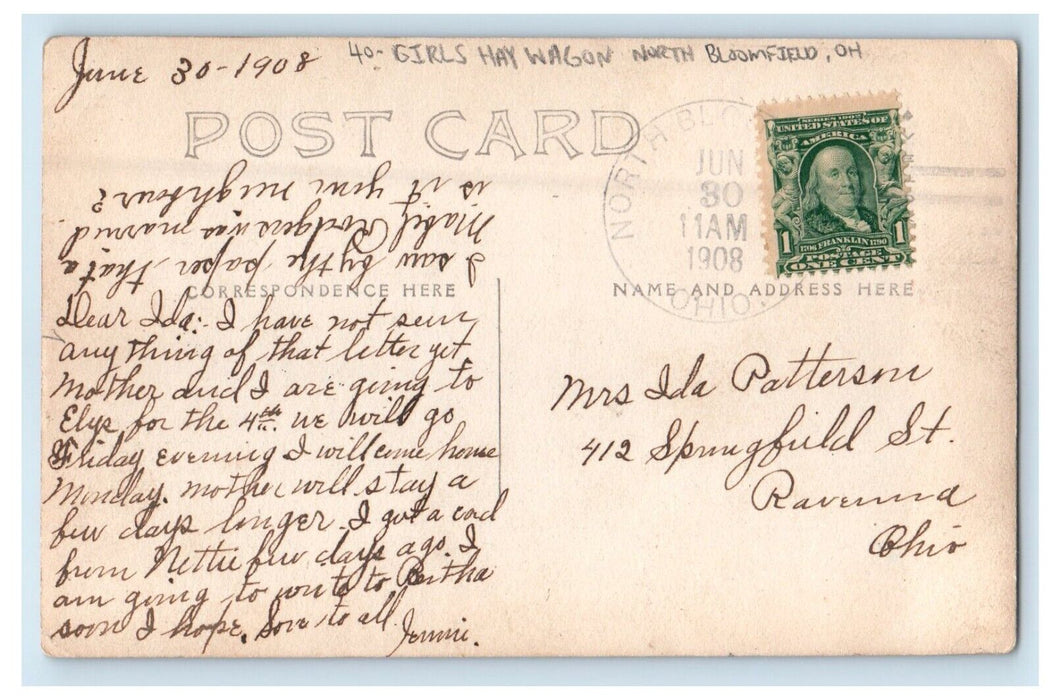 June 30-1908
40- GIRLS HAY WAGON NORTH BLOOMFIELD, OH
POST CARD
NORTH BLO
JUN
30
11AM
1908
OHIO.
SERIES 1902
UNITED STATES OF
AMERICA
1706 FRANKLIN 1790
1 POSTAGE 1
ONE CENT
CORRESPONDENCE HERE
NAME AND ADDRESS HERE
Dear Ida:- I have not seen
any thing of that letter yet
Mother and I are going to
Elys for the 4th. we will go
Friday evening I will come home
Monday. mother will stay a
few days longer. I got a card
from Nettie few days ago. I
am going to write to Bertha
soon I hope. Love to all
Jennie.
I saw by the paper that a
Mabel Rodgers was married
is it your neighbour?
Mrs Ida Patterson
412 Springfield St.
Ravenna
Ohio